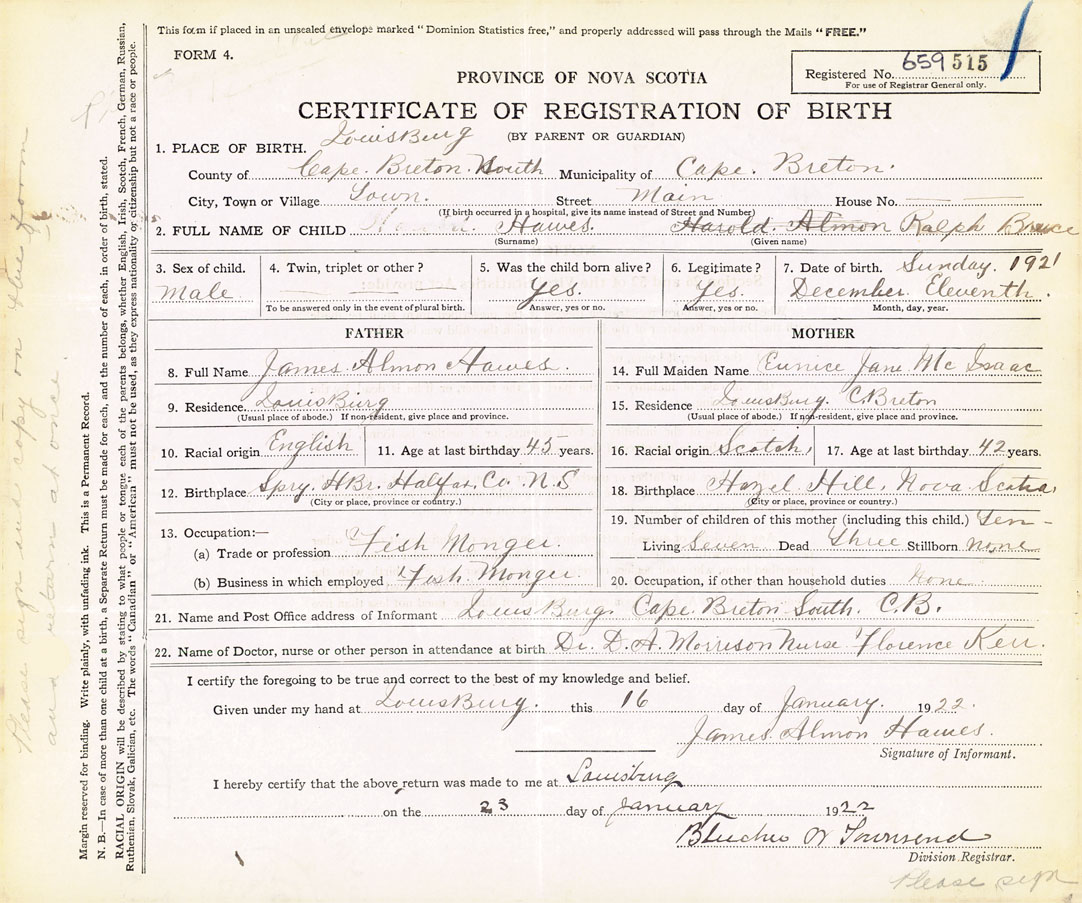 This form if placed in an unsealed envelope marked "Dominion Statistics free," and properly addressed will pass through the Mails "FREE."
FORM 4.
Registered No. 659 515
For use of Registrar General only.
PROVINCE OF NOVA SCOTIA
CERTIFICATE OF REGISTRATION OF BIRTH
(BY PARENT OR GUARDIAN)
1. PLACE OF BIRTH. LouisBurg
County of Cape. Breton. South Municipality of Cape. Breton.
City, Town or Village Town. Street Main House No.
(If birth occurred in a hospital, give its name instead of Street and Number)
2. FULL NAME OF CHILD Hawes. Harold. Almon Ralph Bruce
(Surname) (Given name)
3. Sex of child. Male.
4. Twin, triplet or other?
To be answered only in the event of plural birth.
5. Was the child born alive? Yes.
Answer, yes or no.
6. Legitimate? Yes.
Answer, yes or no.
7. Date of birth. Sunday. 1921
December. Eleventh.
Month, day, year.
FATHER
8. Full Name James. Almon Hawes.
9. Residence. LouisBurg
(Usual place of abode.) If non-resident, give place and province.
10. Racial origin English 11. Age at last birthday 45 years.
12. Birthplace Spry. HBr. Halfax, Co. N.S
(City or place, province or country.)
13. Occupation:—
(a) Trade or profession Fish Monger.
(b) Business in which employed Fish. Monger.
MOTHER
14. Full Maiden Name Eunice Jane Mc Isaac
15. Residence Louisburg. C.Breton
(Usual place of abode.) If non-resident, give place and province.
16. Racial origin Scotch, 17. Age at last birthday 42 years.
18. Birthplace Hazel Hill, Nova Scotia,
(City or place, province or country.)
19. Number of children of this mother (including this child.) Ten-
Living Seven Dead Three Stillborn none
20. Occupation, if other than household duties None
21. Name and Post Office address of Informant LouisBurg. Cape. Breton South. C.B.
22. Name of Doctor, nurse or other person in attendance at birth Dr. D. A. Morrison Nurse Florence Kerr.
I certify the foregoing to be true and correct to the best of my knowledge and belief.
Given under my hand at LouisBurg. this 16 day of January. 1922.
James. Almon Hawes.
Signature of Informant.
I hereby certify that the above return was made to me at Louisburg
on the 23 day of January 1922
W Townsend
Division Registrar.
Please sign
Margin reserved for binding. Write plainly, with unfading ink. This is a Permanent Record.
N. B.—In case of more than one child at a birth, a Separate Return must be made for each, and the number of each, in order of birth, stated.
RACIAL ORIGIN will be described by stating to what people or tongue each of the parents belongs, whether English, Irish, Scotch, French, German, Russian,
Ruthenian, Slovak, Galician, etc. The words "Canadian" or "American" must not be used, as they express nationality or citizenship but not a race or people.
Please sign copy on this form
and return at once.